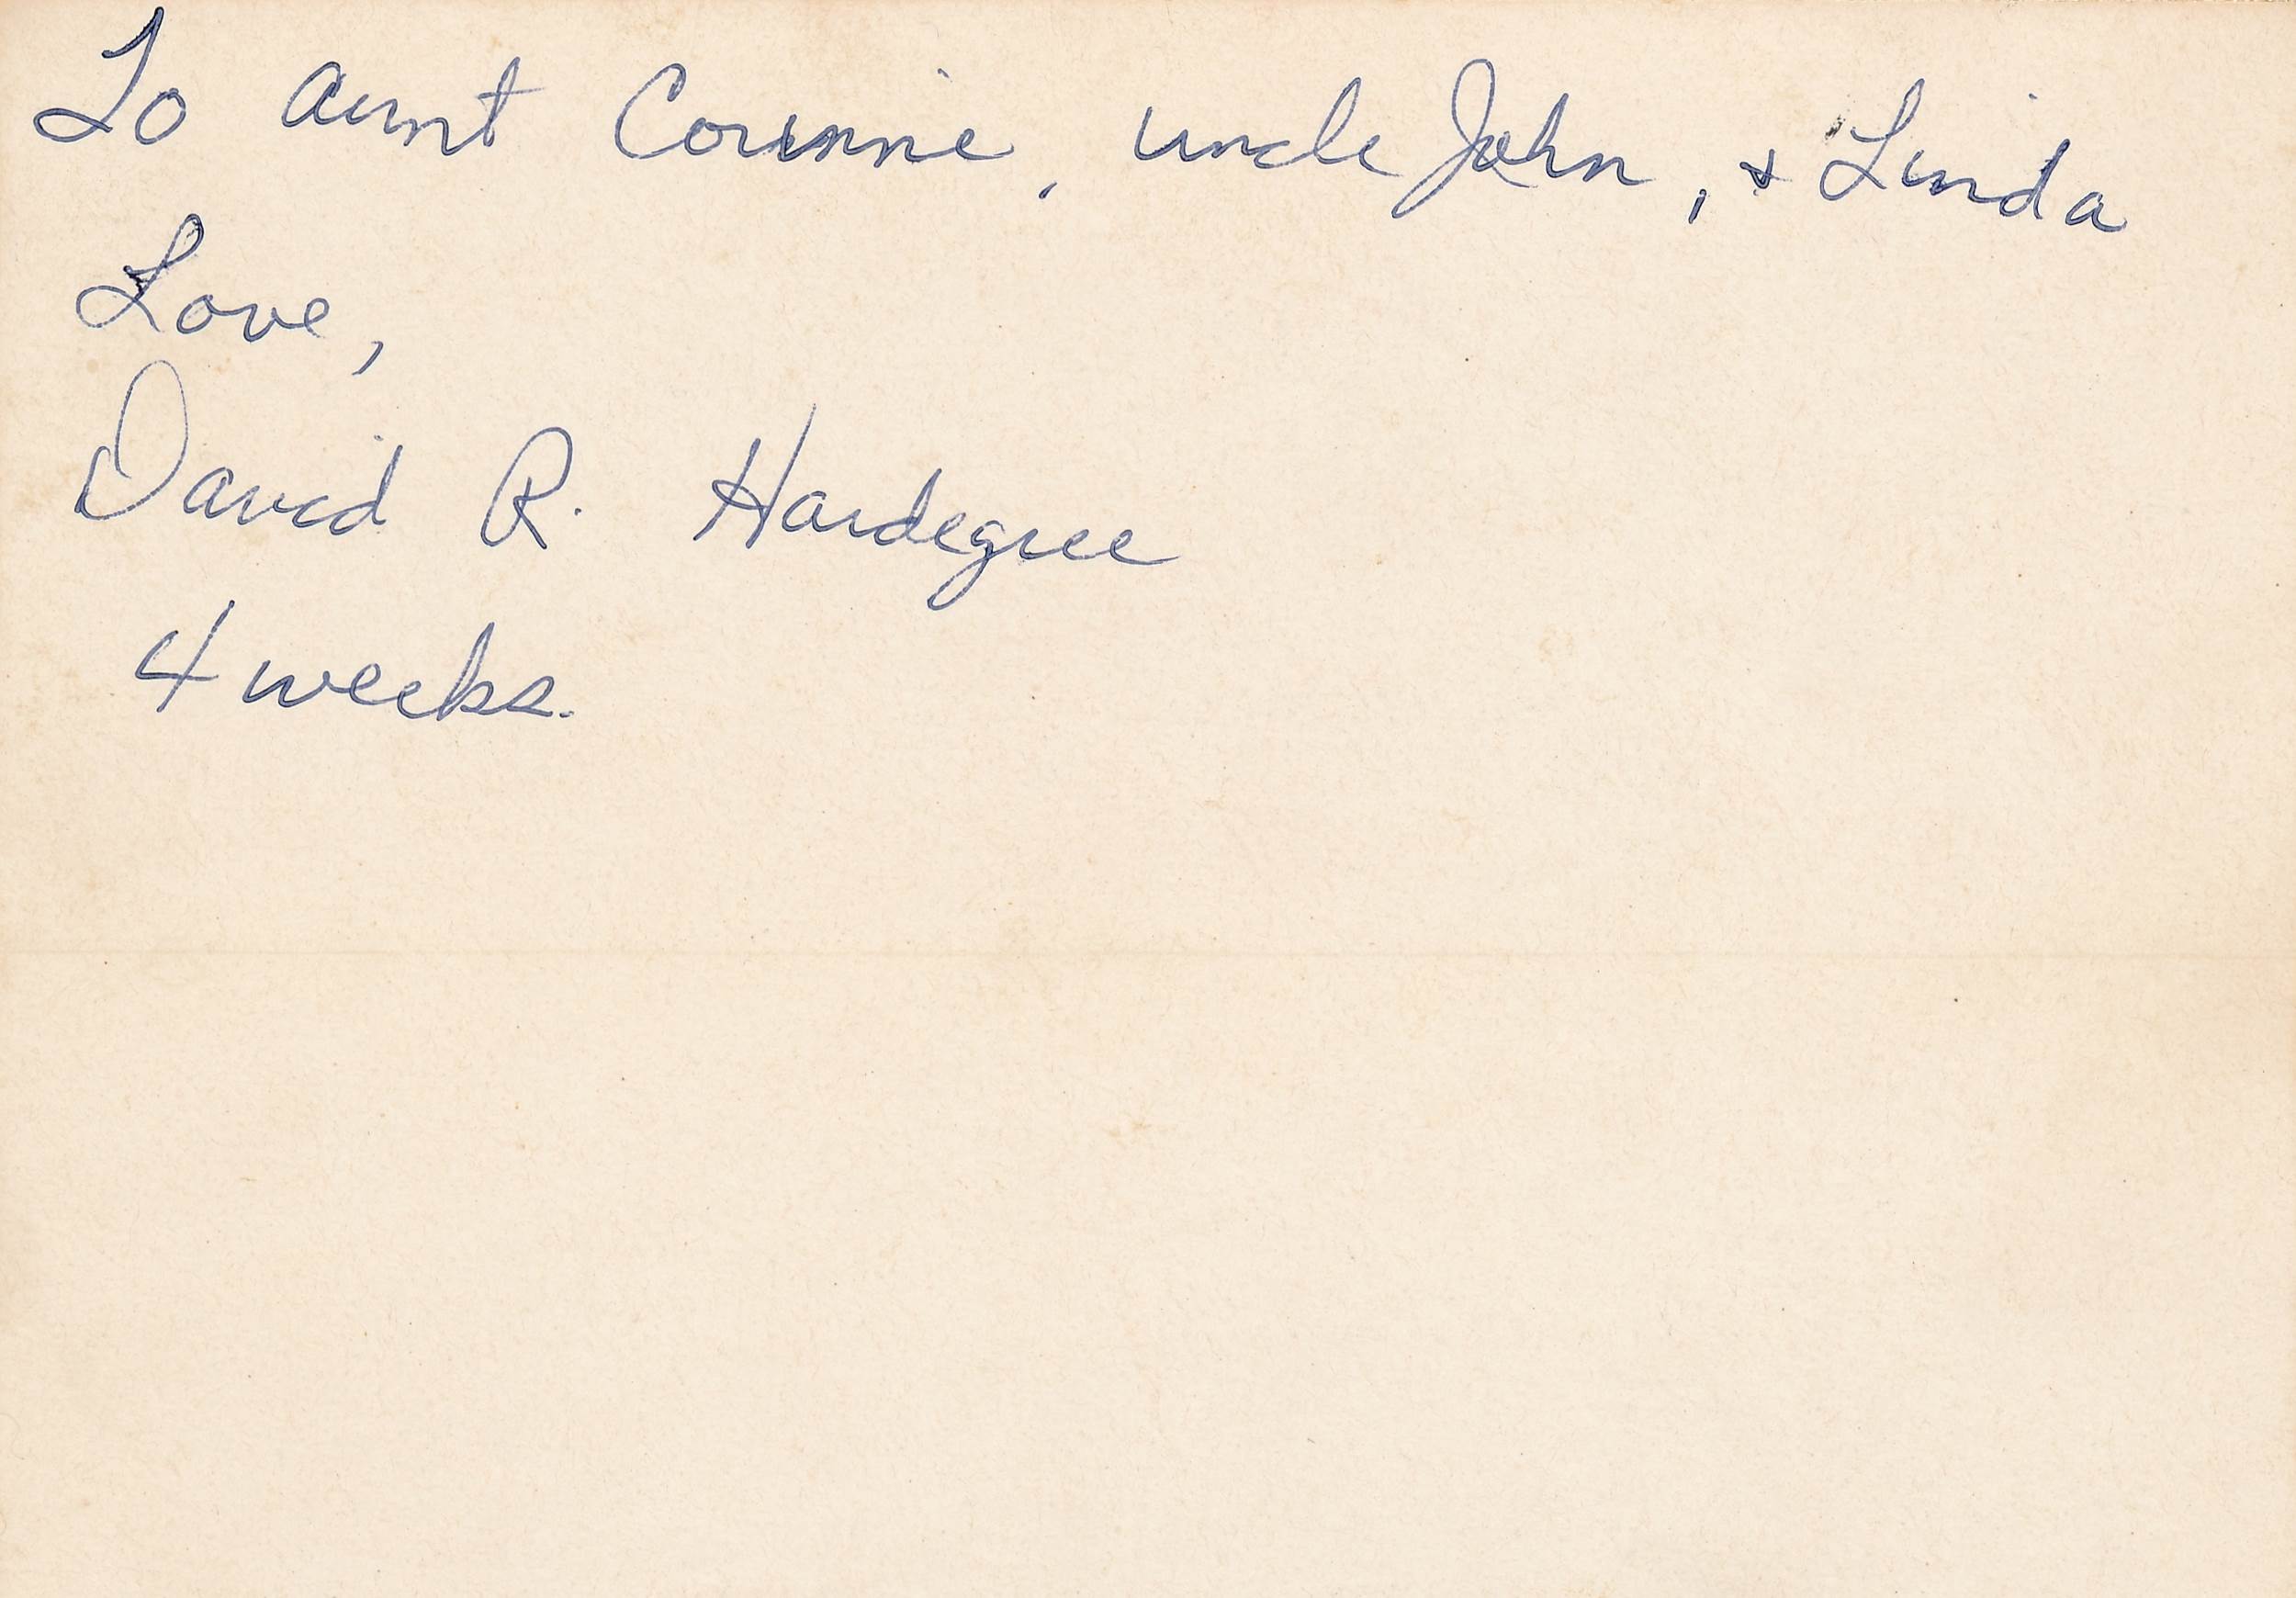 To aunt Corinne, uncle John, & Linda
Love,
David R. Hardegree
4 weeks.